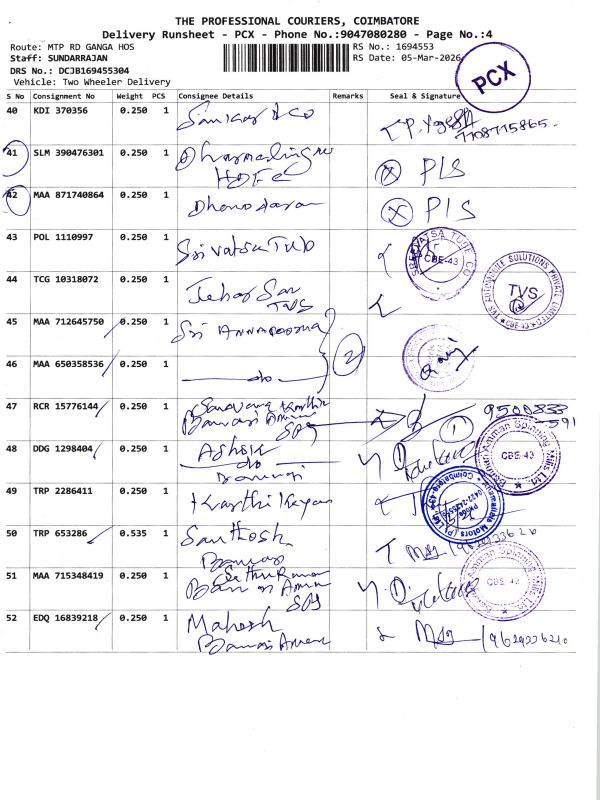 THE PROFESSIONAL COURIERS, COIMBATORE
Delivery Runsheet - PCX - Phone No.:9047080280 - Page No.:4
Route: MTP RD GANGA HOS
RS No.: 1694553
Staff: SUNDARRAJAN
RS Date: 05-Mar-2026
DRS No.: DCJB169455304
Vehicle: Two Wheeler Delivery
PCX
S No Consignment No Weight PCS Consignee Details Remarks Seal & Signature
40 KDI 370356 0.250 1 Sankar & Co
7708715865.
41 SLM 390476301 0.250 1 Dharmalingam
HDFC
PLS
42 MAA 871740864 0.250 1
PLS
43 POL 1110997 0.250 1 Sri Vatsa Tub
CBE-43
44 TCG 10318072 0.250 1
TVS
TVS AUTOMOBILE SOLUTIONS PRIVATE LIMITED
TVS
CBE-43
45 MAA 712645750 0.250 1 Sri Annapoorna
2
46 MAA 650358536 0.250 1 do
47 RCR 15776144 0.250 1 Saravana Karthi
Bannari Amman
SPG
1
9500833
591
48 DDG 1298404 0.250 1 Ashok
do
Bannari
CBE-43
49 TRP 2286411 0.250 1 Karthikeyan
50 TRP 653286 0.535 1 Santhosh
Bannari
51 MAA 715348419 0.250 1
Bannari Amman
SPG
CBE-43
52 EDQ 16839218 0.250 1 Mahesh
Bannari Amman
9629236210